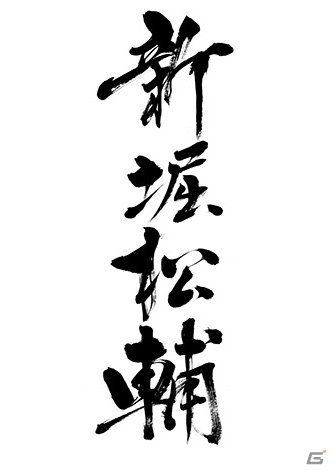 新堀松輔